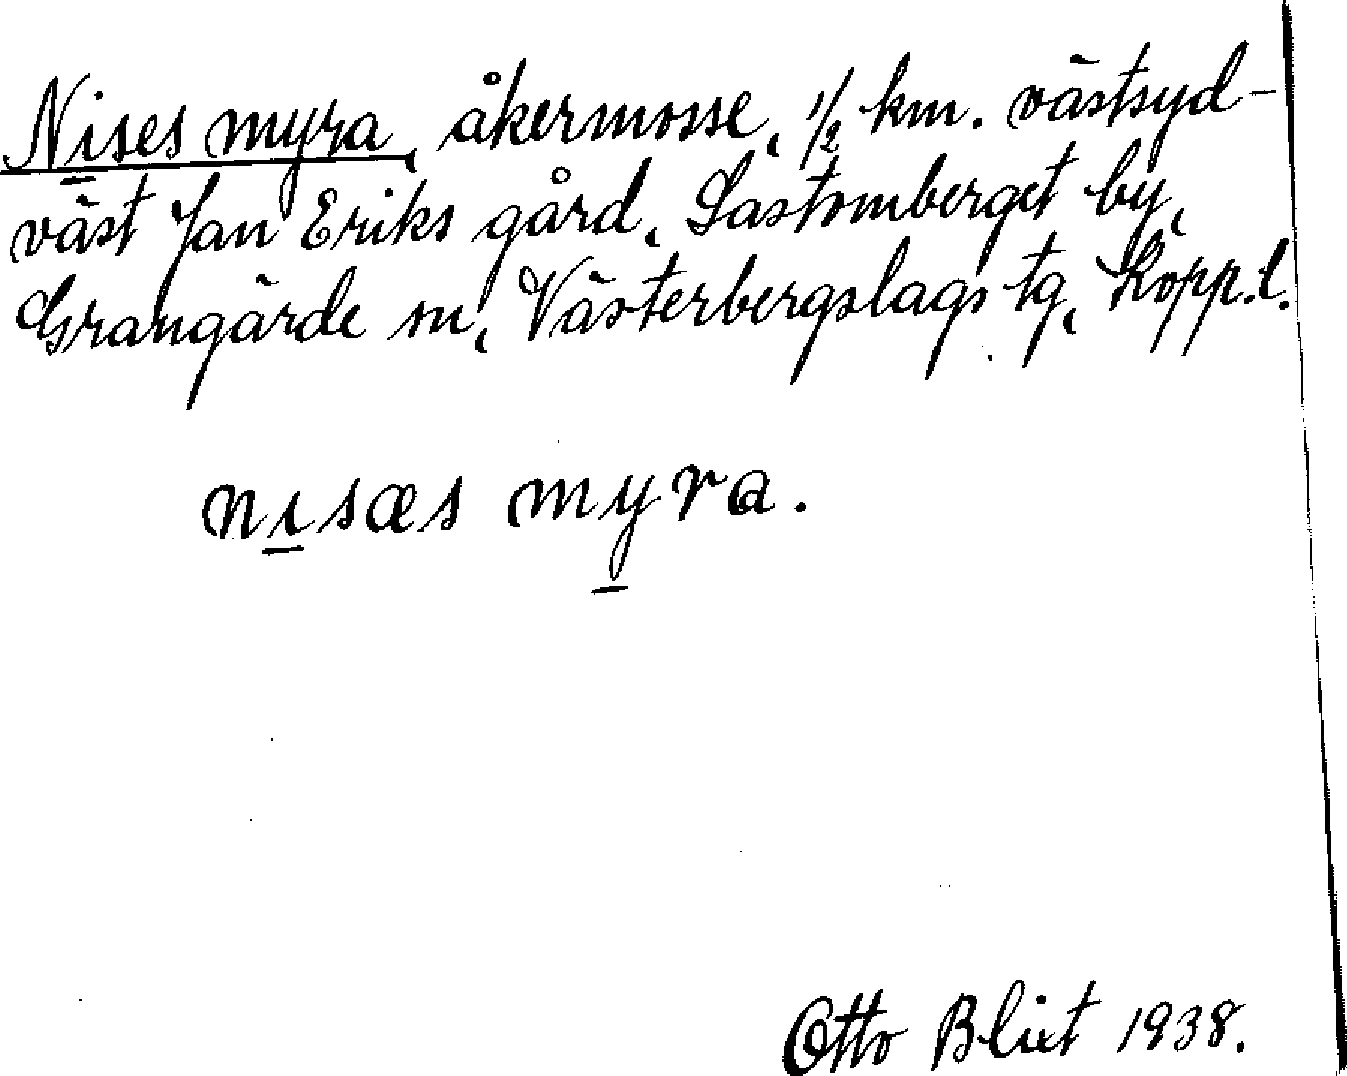 Nises myra, åkermosse, 1/2 km. västsyd-
väst Jan Eriks gård, Lastomberget by,
Grangärde sn, Västerbergslags tg, Kopp.l.
nisæs myra.
Otto Blixt 1938.